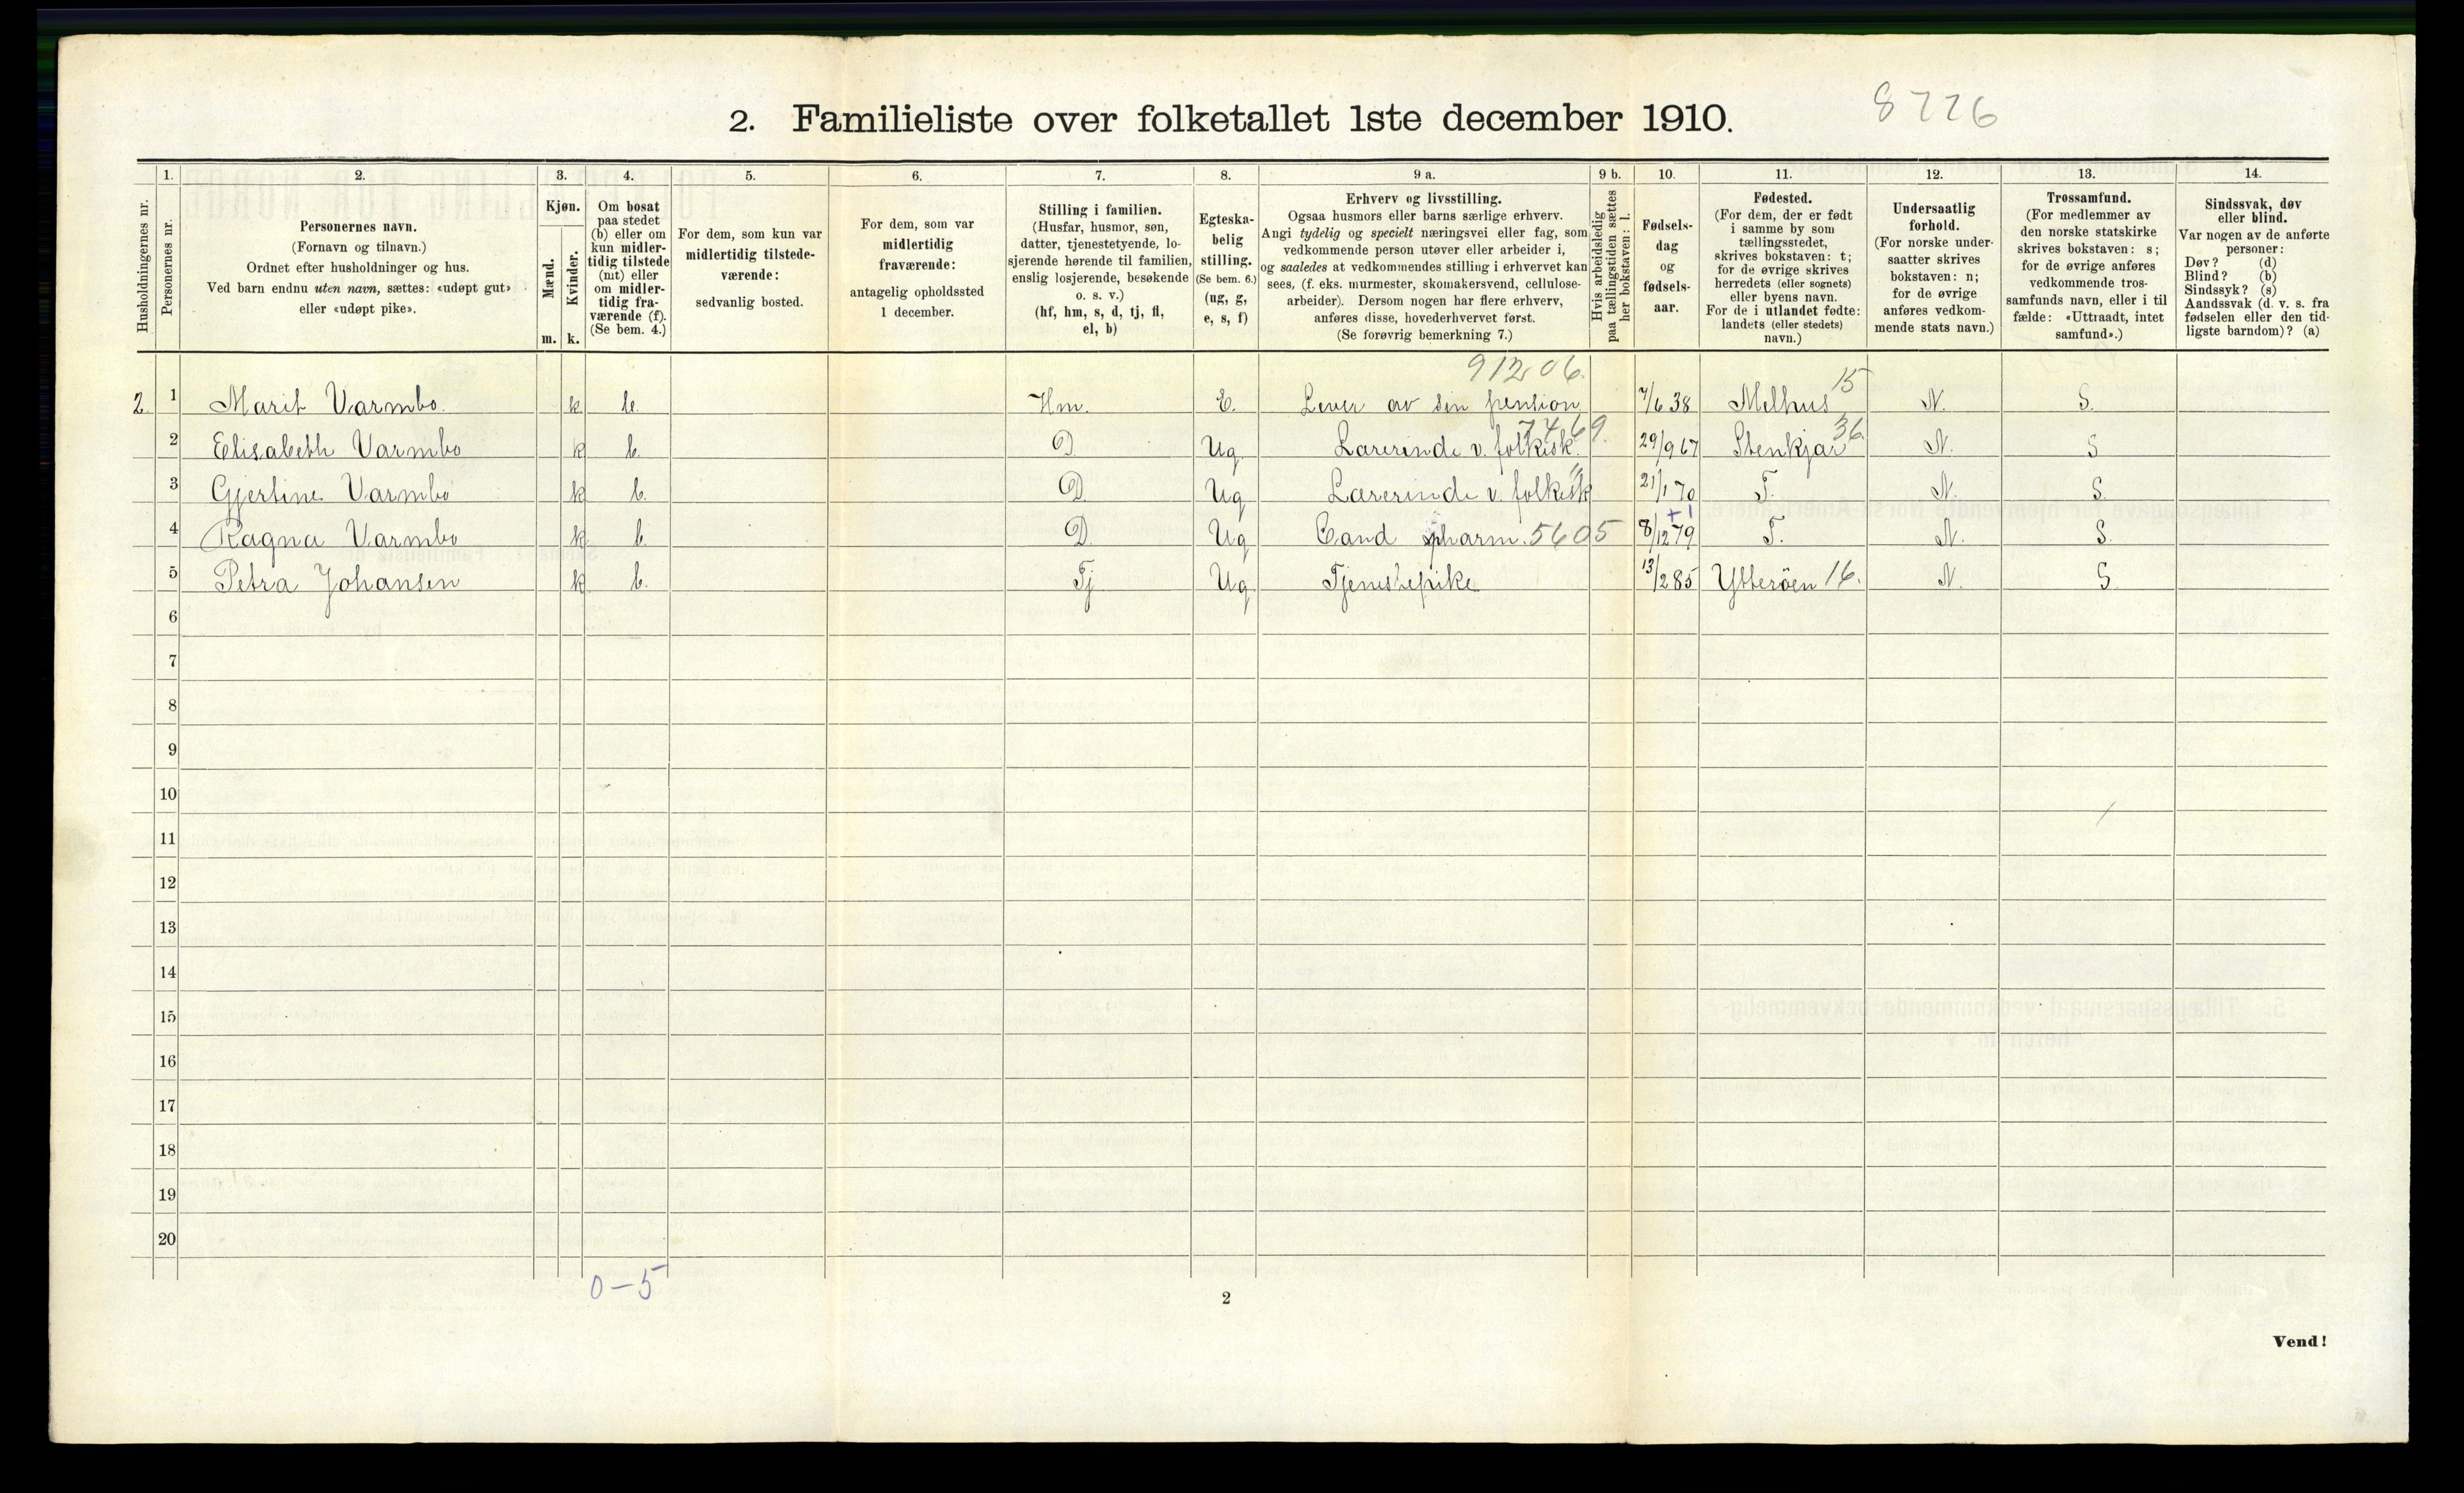 8226
2. Familieliste over folketallet 1ste december 1910.
Husholdningernes nr.
1.
Personernes nr.
2.
Personernes navn.
(Fornavn og tilnavn.)
Ordnet efter husholdninger og hus.
Ved barn endnu uten navn, sættes: «udøpt gut»
eller «udøpt pike».
3.
Kjøn.
Mænd.
Kvinder.
m. k.
4.
Om bosat
paa stedet
(b) eller om
kun midler-
tidig tilstede
(mt) eller
om midler-
tidig fra-
værende (f).
(Se bem. 4.)
5.
For dem, som kun var
midlertidig tilstede-
værende:
sedvanlig bosted.
6.
For dem, som var
midlertidig
fraværende:
antagelig opholdssted
1 december.
7.
Stilling i familien.
(Husfar, husmor, søn,
datter, tjenestetyende, lo-
sjerende hørende til familien,
enslig losjerende, besøkende
o. s. v.)
(hf, hm, s, d, tj, fl,
el, b)
8.
Egteska-
belig
stilling.
(Se bem. 6.)
(ug, g,
e, s, f)
9 a.
Erhverv og livsstilling.
Ogsaa husmors eller barns særlige erhverv.
Angi tydelig og specielt næringsvei eller fag, som
vedkommende person utøver eller arbeider i,
og saaledes at vedkommendes stilling i erhvervet kan
sees, (f. eks. murmester, skomakersvend, cellulose-
arbeider). Dersom nogen har flere erhverv,
anføres disse, hovederhvervet først.
(Se forøvrig bemerkning 7.)
9 b.
Hvis arbeidsledig
paa tællingstiden sættes
her bokstaven: l.
10.
Fødsels-
dag
og
fødsels-
aar.
11.
Fødested.
(For dem, der er født
i samme by som
tællingsstedet,
skrives bokstaven: t;
for de øvrige skrives
herredets (eller sognets)
eller byens navn.
For de i utlandet fødte:
landets (eller stedets)
navn.)
12.
Undersaatlig
forhold.
(For norske under-
saatter skrives
bokstaven: n;
for de øvrige
anføres vedkom-
mende stats navn.)
13.
Trossamfund.
(For medlemmer av
den norske statskirke
skrives bokstaven: s;
for de øvrige anføres
vedkommende tros-
samfunds navn, eller i til
fælde: «Uttraadt, intet
samfund».)
14.
Sindssvak, døv
eller blind.
Var nogen av de anførte
personer:
Døv? (d)
Blind? (b)
Sindssyk? (s)
Aandssvak (d. v. s. fra
fødselen eller den tid-
ligste barndom)? (a)
91206. 15
2. 1 Marit Varmbo. k b. Hm. E. Lever av sin pention 7/6 38 Melhus N. S.
7469. 36.
2 Elisabeth Varmbo k b. D Ug Lærerinde v. folkesk. 29/9 67 Stenkjær N. S
"
3 Gjertine Varmbo k b. D Ug Lærerinde v. folkesk 21/1 70 T. N. S.
+1
4 Ragna Varmbo k b. D. Ug Cand pharm. 5605 8/12 79 T. N. S.
5 Petra Johansen k b. Tj Ug Tjenestepike 13/2 85 Ytterøen 16. N. S
6
7
8
9
10
11
12
13
14
15
16
17
18
19
20
0-5
2
Vend!